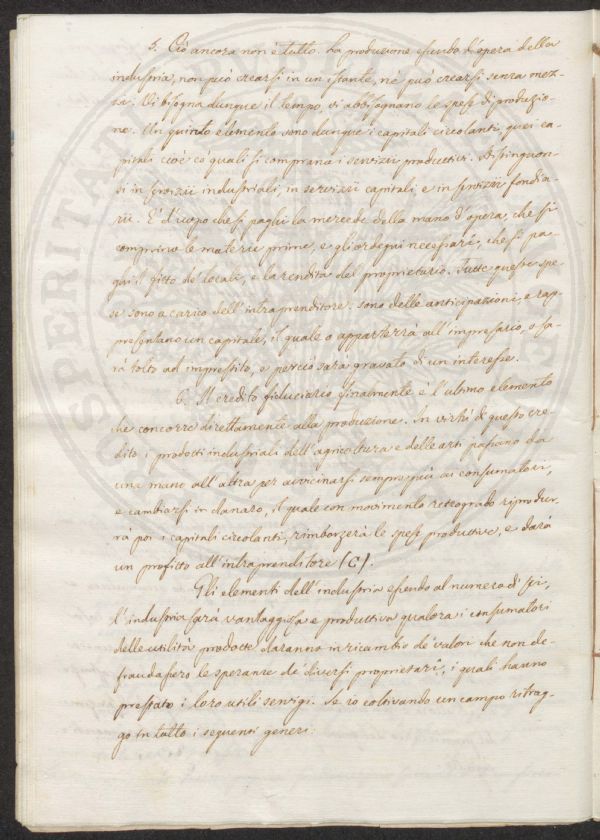 5. Ciò ancora non è tutto. La produzione essendo l'opera della
industria, non può crearsi in un istante, nè può crearsi senza mez-
zi. Vi bisogna dunque il tempo, vi abbisognano le spese di produzio-
ne. Un quinto elemento sono dunque i capitali circolanti, quei ca-
pitali cioè co' quali si comprano i servizii produttivi. Distinguon-
si in servizii industriali, in servizii capitali e in servizii fondia-
rii. E' d'uopo che si paghi la mercede della mano d'opera, che si
comprino le materie prime, e gli ordegni necessari, che si pa-
ghi il fitto de' locali, e la rendita del proprietario. Tutte queste spe-
se sono a carico dell'intraprenditore. sono delle anticipazioni, e rap-
presentano un capitale, il quale o apparterrà all'impresario, o sa-
rà tolto ad imprestito, e perciò sarà gravato di un interesse.
6. Il credito fiduciario finalmente è l'ultimo elemento
che concorre direttamente alla produzione. In virtù di questo cre-
dito i prodotti industriali dell'agricoltura e delle arti passano da
una mano all'altra per avvicinarsi sempre più ai consumatori,
e cambiarsi in danaro, il quale con movimento retrogrado riprodur-
rà poi i capitali circolanti, rimborzerà le spese produttive, e darà
un profitto all'intraprenditore (C).
Gli elementi dell'industria essendo al numero di sei,
l'industria sarà vantaggiosa e produttiva qualora i consumatori
delle utilità prodotte daranno in ricambio de' valori che non de-
fraudassero le speranze de' diversi proprietarî, i quali hanno
prestato i loro utili servigi. Se io coltivando un campo ritrag-
go in tutto i seguenti generi: